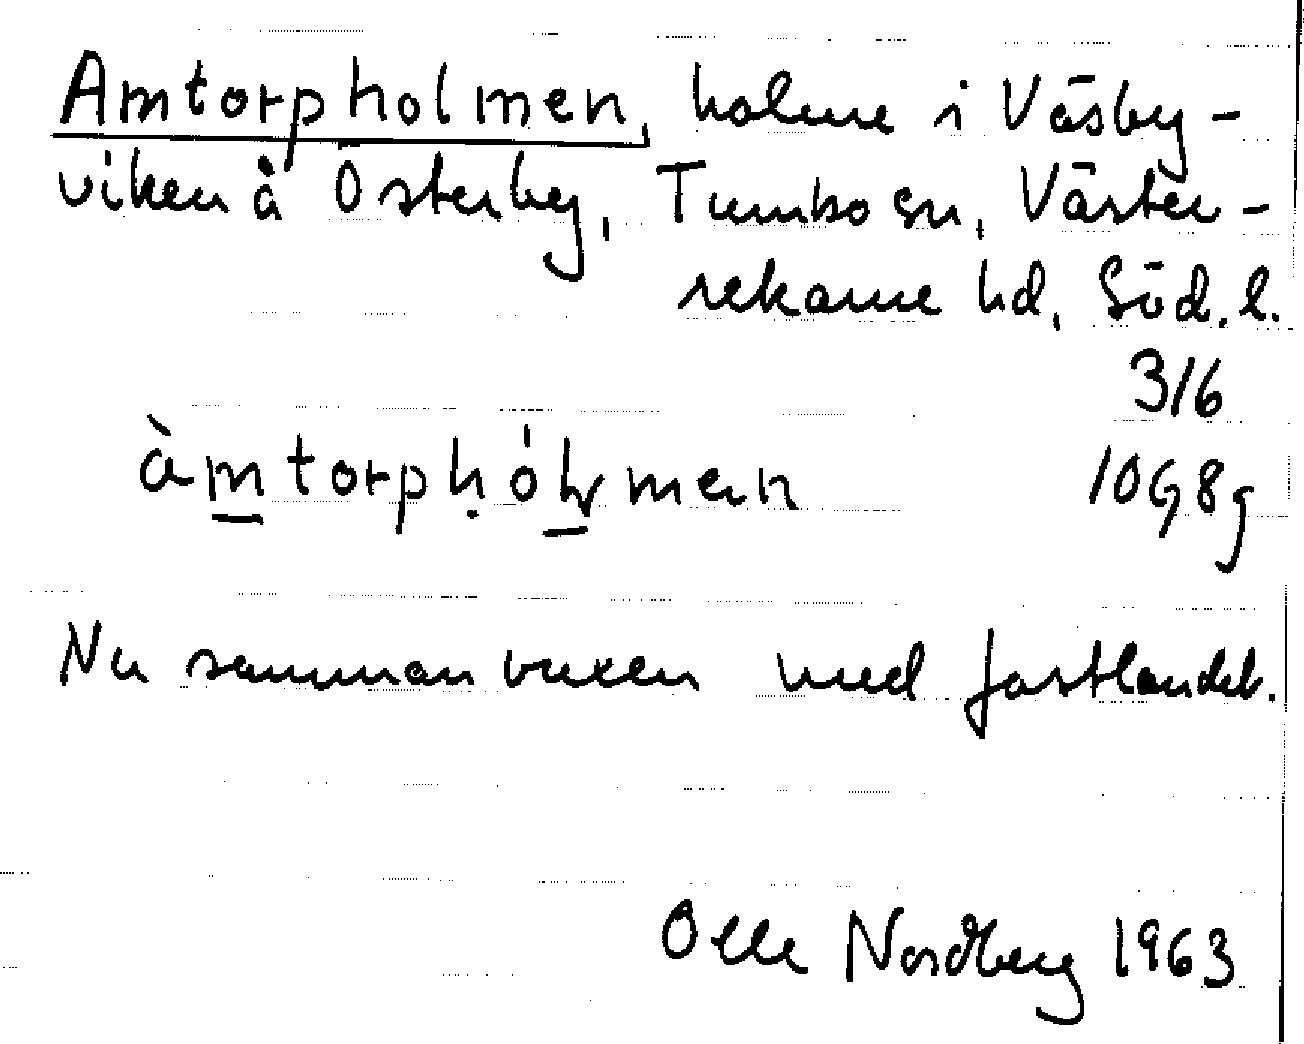 Amtorpholmen, holme i Väsby-
viken å Österby, Tumbo sn, Väster-
rekarne hd, Söd. l.
316
10G8g
àmtorpḥólmen
Nu sammanvuxen med fastlandet.
Olle Nordberg 1963